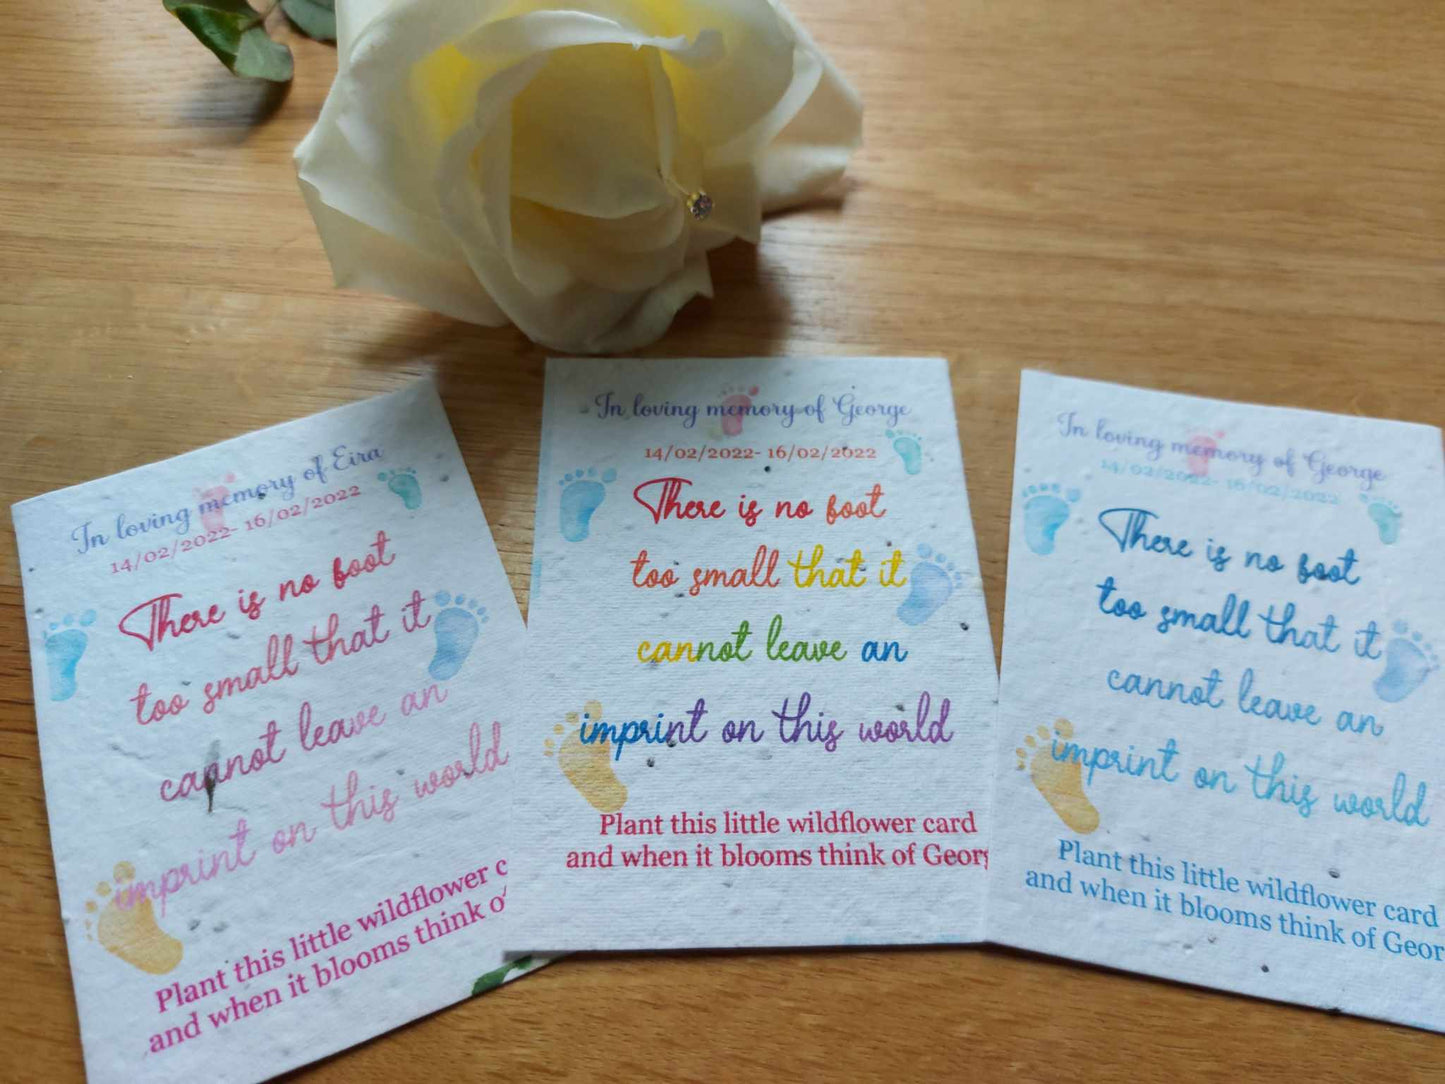 In loving memory of Eira
14/02/2022- 16/02/2022
There is no foot
too small that it
cannot leave an
imprint on this world
Plant this little wildflower
and when it blooms think
In loving memory of George
14/02/2022- 16/02/2022
There is no foot
too small that it
cannot leave an
imprint on this world
Plant this little wildflower card
and when it blooms think of Georg
In loving memory of George
14/02/2022- 16/02/2022
There is no foot
too small that it
cannot leave an
imprint on this world
Plant this little wildflower card
and when it blooms think of Geor